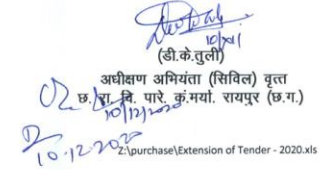 10/12/
(डी.के.तुली)
अधीक्षण अभियंता (सिविल) वृत्त
छ. रा. वि. पारे. कं.मर्या. रायपुर (छ.ग.)
10/12/2020
10.12.2020
Z:\purchase\Extension of Tender - 2020.xls